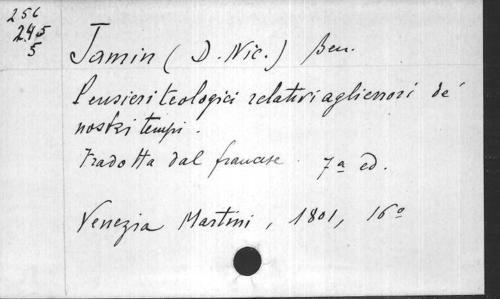 256
245
5
Jamin ( D. Nic. ) Ben.
Pensieri teologici relativi agli errori de'
nostri tempi.
Tradotta dal francese. 7ª ed.
Venezia Martini, 1801, 16º